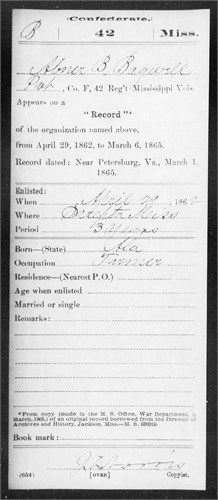 Confederate.
B 42 Miss.
Abner B. Bagwell
Pvt, Co. F, 42 Reg't Mississippi Vols.
Appears on a
"Record"*
of the organization named above,
from April 29, 1862, to March 6, 1865.
Record dated: Near Petersburg, Va., March 1,
1865.
Enlisted:
When April 29, 1862
Where Miss
Period 3 Years
Born—(State) Ala
Occupation Farmer
Residence—(Nearest P. O.)
Age when enlisted
Married or single
Remarks:
*From copy (made in the M. S. Office, War Department, in
March, 1905,) of an original record borrowed from the Director of
Archives and History, Jackson, Miss.—M. S.
Book mark:
(654) [OVER] Copyist.